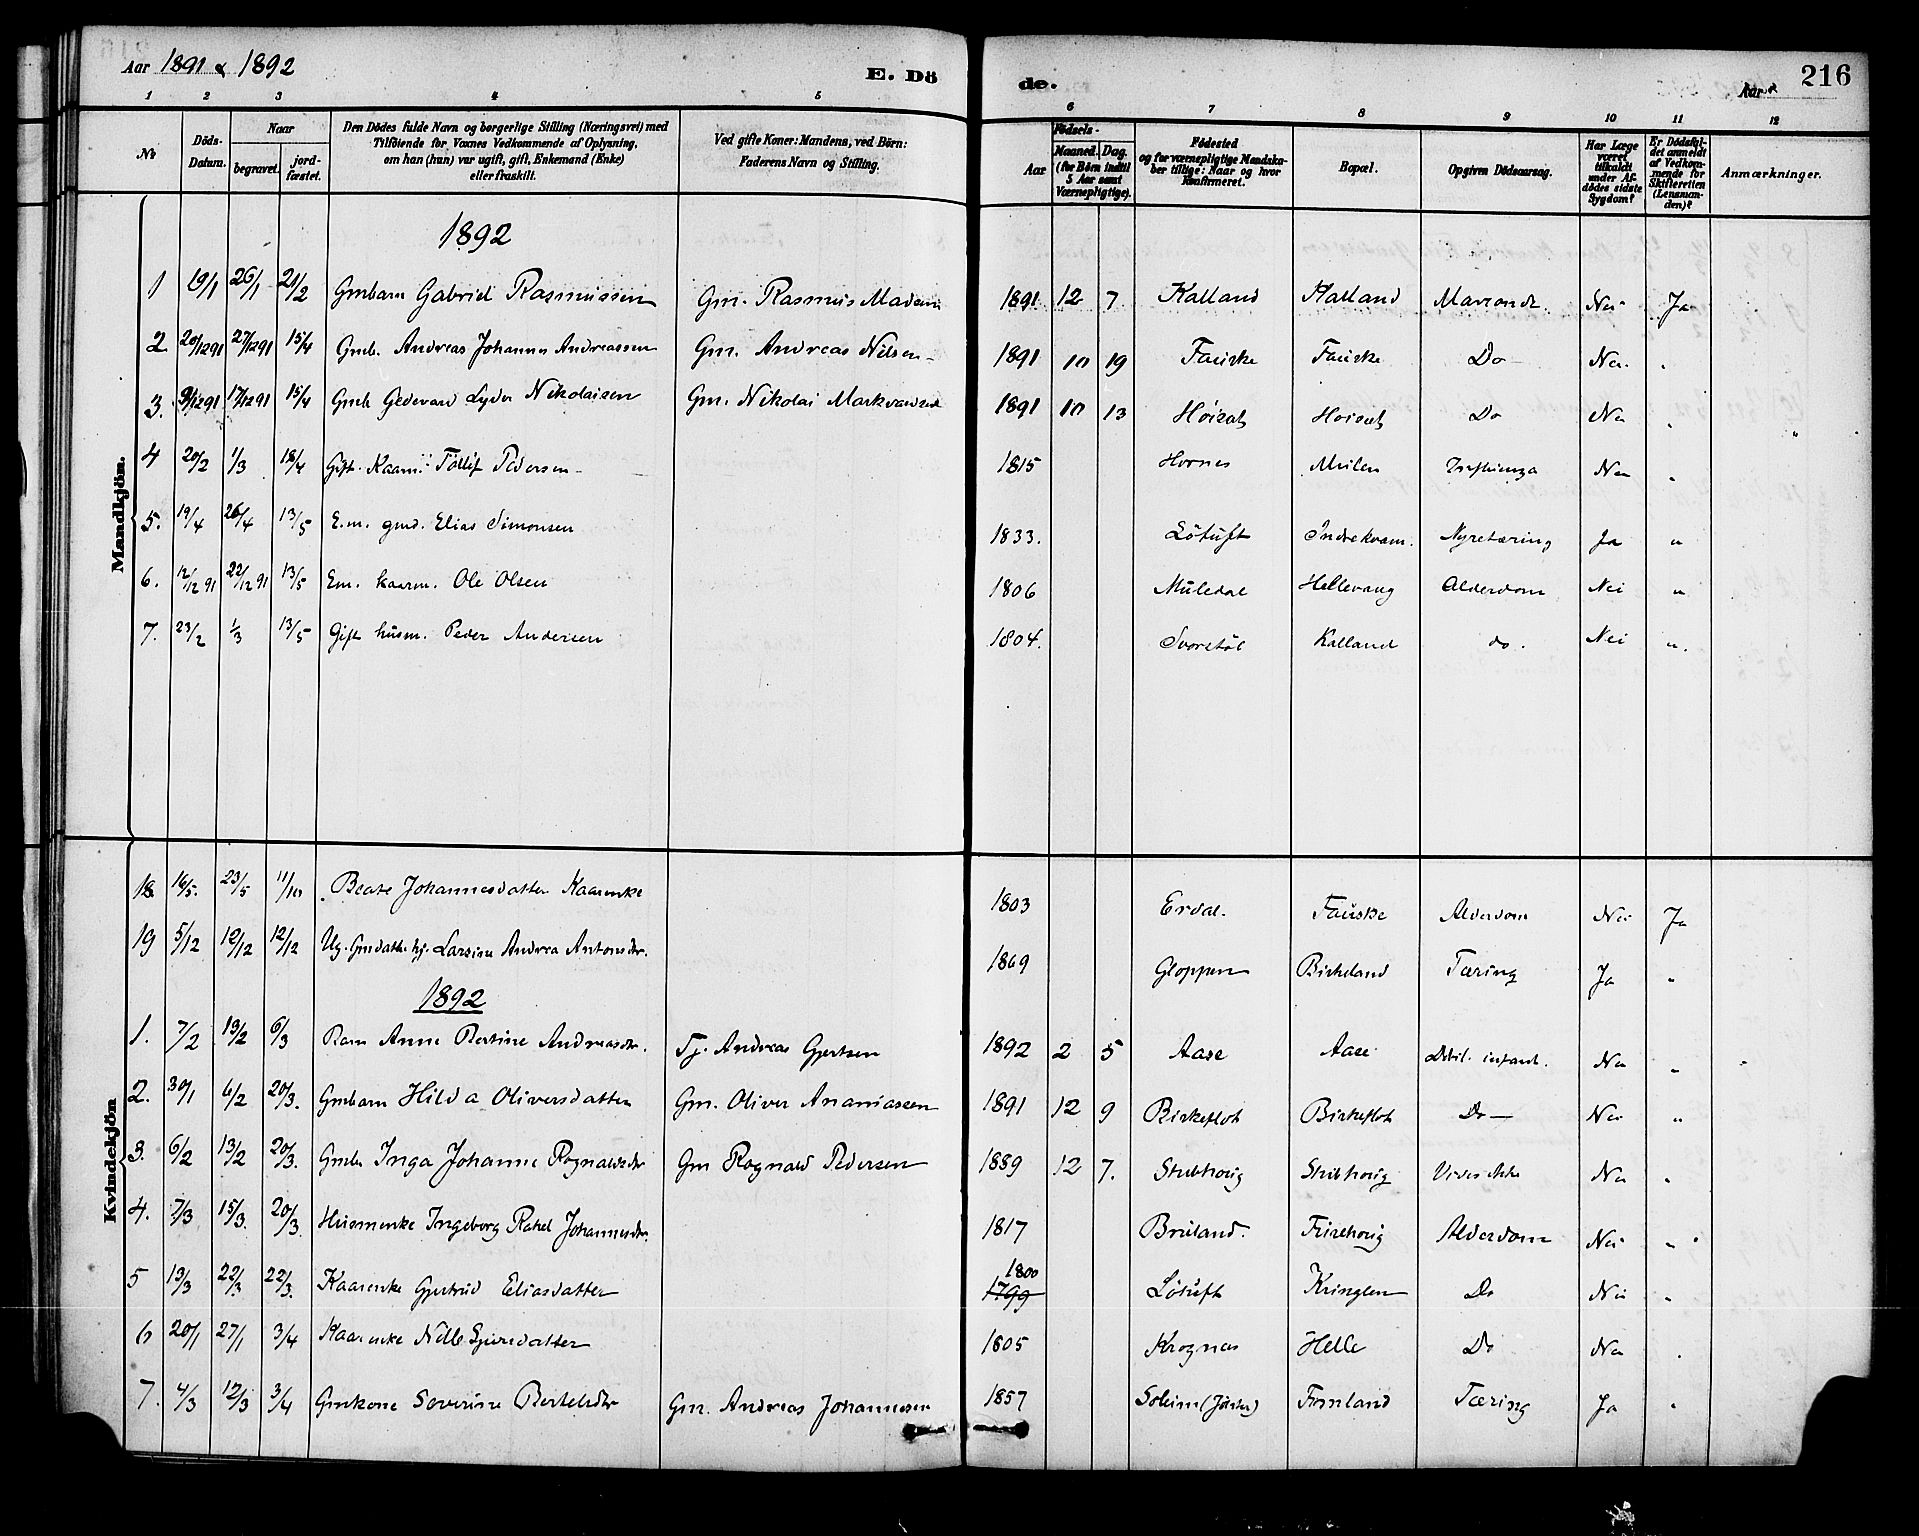 Aar 1891 & 1892 E. Dö de. Aar 216
1 2 3 4 5 6 7 8 9 10 11 12
No Döds-Datum. Naar begravet. jord-fæstet. Den Dödes fulde Navn og borgerlige Stilling (Næringsvei) med Tilföiende for Voxnes Vedkommende af Oplysning, om han (hun) var ugift, gift, Enkemand (Enke) eller fraskilt. Ved gifte Koner: Mandens, ved Börn: Faderens Navn og Stilling. Aar Födsels- Maaned. Dag. (for Börn indtil 5 Aar samt Værnepligtige). Födested og for værnepligtige Mandskaber tillige: Naar og hvor konfirmeret. Bopæl. Opgiven Dödsaarsag. Har Læge været tilkaldt under Afdödes sidste Sygdom? Er Dödsfaldet anmeldt af Vedkommende for Skifteretten (Lensmanden)? Anmærkninger.
Mandkjön.
1892
1 19/1 26/1 21/2 Gmbarn Gabriel Rasmussen Gm. Rasmus Madsen 1891 12 7 Kalland Kalland Nei Ja
2 20/12 91 27/12 91 15/4 Gmb. Andreas Johannes Andreassen Gm. Andreas Nilsen 1891 10 19 Fauske Fauske Do Nei "
3. 9/12 91 17/12 91 15/4 Gmb Gedevard Lyder Nikolaisen Gm. Nikolai 1891 10 13 Höiset Höiset Do Nei "
4 20/2 1/3 18/4 Gift. Kaarm: Tollef Pedersen 1815 Hornes Mulen Influenza Nei "
5. 19/4 26/4 13/5 E.m. gmd. Elias Simonsen 1833. Løtuft Indrekvam. Nyretæring Ja "
6. 12/12 91 22/12 91 13/5 Em. kaarm. Ole Olsen 1806 Muledal Hellevang Alderdom Nei "
7. 23/2 1/3 13/5 Gift husm. Peder Andersen 1804. Svorstøl Kalland do. Nei "
Kvindekjön
18 16/5. 23/5 11/10 Beate Johannesdatter Kaarenke 1803 Erdal. Fauske Alderdom Nei Ja
19 5/12 12/12 12/12 Ug. Gmdatter Larsine Andrea Antonsdtr. 1869 Gloppen Birkeland Tæring Ja "
1892
1. 7/2 13/2 6/3 Barn Anne Bertine Andreasdtr. Tj. Andreas Gjertsen 1892 2 5 Aase Aase Debil. infant. Nei "
2. 30/1 6/2 20/3. Gmbarn Hilda Oliversdatter Gm. Oliver Ananiassen 1891 12 9 Birkeflot Birkeflot Do Nei "
3. 6/2 13/2 20/3. Gmb Inga Johanne Rognaldsdtr Gm Rognald Pedersen 1889 12 7. Stubhoug Stubhoug Vides ikke Nei "
4. 7/3 15/3. 20/3. Husmenke Ingeborg Rakel Johannesdtr. 1817 Bruland. Friskhoug Alderdom Nei "
5 13/3 22/3 22/3. Kaarenke Gjertrud Eliasdatter 1800 1799 Løtuft Kringlen Do Nei "
6 20/1 27/1 3/4 Kaarenke Nille Sjursdatter 1805 Krognæs Helle Do Nei "
7. 4/3 12/3 3/4 Gmkone Severine Bertelsdtr Gm. Andreas Johannesen 1857 Soleim (Jølster) Tæring Ja "